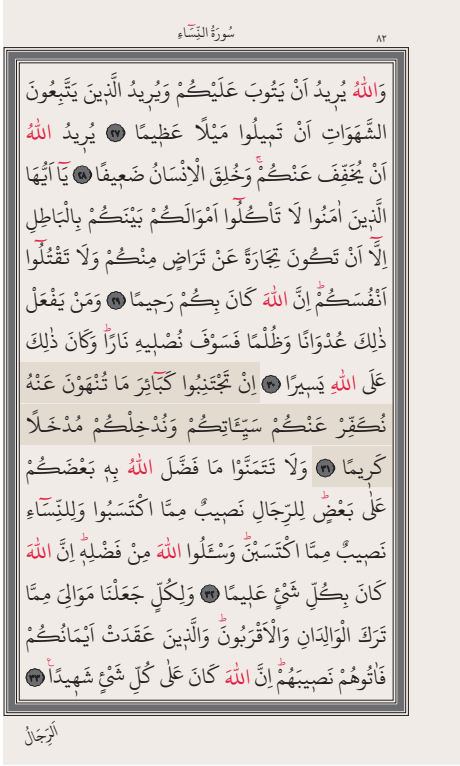 سُورَةُ النِّسَٓاءِ
٨٢
وَاللّٰهُ يُرٖيدُ اَنْ يَتُوبَ عَلَيْكُمْ وَيُرٖيدُ الَّذٖينَ يَتَّبِعُونَ
الشَّهَوَاتِ اَنْ تَمٖيلُوا مَيْلًا عَظٖيمًا ۝٢٧ يُرٖيدُ اللّٰهُ
اَنْ يُخَفِّفَ عَنْكُمْۚ وَخُلِقَ الْاِنْسَانُ ضَعٖيفًا ۝٢٨ يَٓا اَيُّهَا
الَّذٖينَ اٰمَنُوا لَا تَاْكُلُٓوا اَمْوَالَكُمْ بَيْنَكُمْ بِالْبَاطِلِ
اِلَّٓا اَنْ تَكُونَ تِجَارَةً عَنْ تَرَاضٍ مِنْكُمْ وَلَا تَقْتُلُٓوا
اَنْفُسَكُمْۜ اِنَّ اللّٰهَ كَانَ بِكُمْ رَحٖيمًا ۝٢٩ وَمَنْ يَفْعَلْ
ذٰلِكَ عُدْوَانًا وَظُلْمًا فَسَوْفَ نُصْلٖيهِ نَارًاۜ وَكَانَ ذٰلِكَ
عَلَى اللّٰهِ يَسٖيرًا ۝٣٠ اِنْ تَجْتَنِبُوا كَبَٓائِرَ مَا تُنْهَوْنَ عَنْهُ
نُكَفِّرْ عَنْكُمْ سَيِّـَٔاتِكُمْ وَنُدْخِلْكُمْ مُدْخَلًا
كَرٖيمًا ۝٣١ وَلَا تَتَمَنَّوْا مَا فَضَّلَ اللّٰهُ بِهٖ بَعْضَكُمْ
عَلٰى بَعْضٍۜ لِلرِّجَالِ نَصٖيبٌ مِمَّا اكْتَسَبُوا وَلِلنِّسَٓاءِ
نَصٖيبٌ مِمَّا اكْتَسَبْنَۜ وَسْـَٔلُوا اللّٰهَ مِنْ فَضْلِهٖۜ اِنَّ اللّٰهَ
كَانَ بِكُلِّ شَيْءٍ عَلٖيمًا ۝٣٢ وَلِكُلٍّ جَعَلْنَا مَوَالِيَ مِمَّا
تَرَكَ الْوَالِدَانِ وَالْاَقْرَبُونَۜ وَالَّذٖينَ عَقَدَتْ اَيْمَانُكُمْ
فَاٰتُوهُمْ نَصٖيبَهُمْۜ اِنَّ اللّٰهَ كَانَ عَلٰى كُلِّ شَيْءٍ شَهٖيدًاۚ ۝٣٣
اَلرِّجَالُ